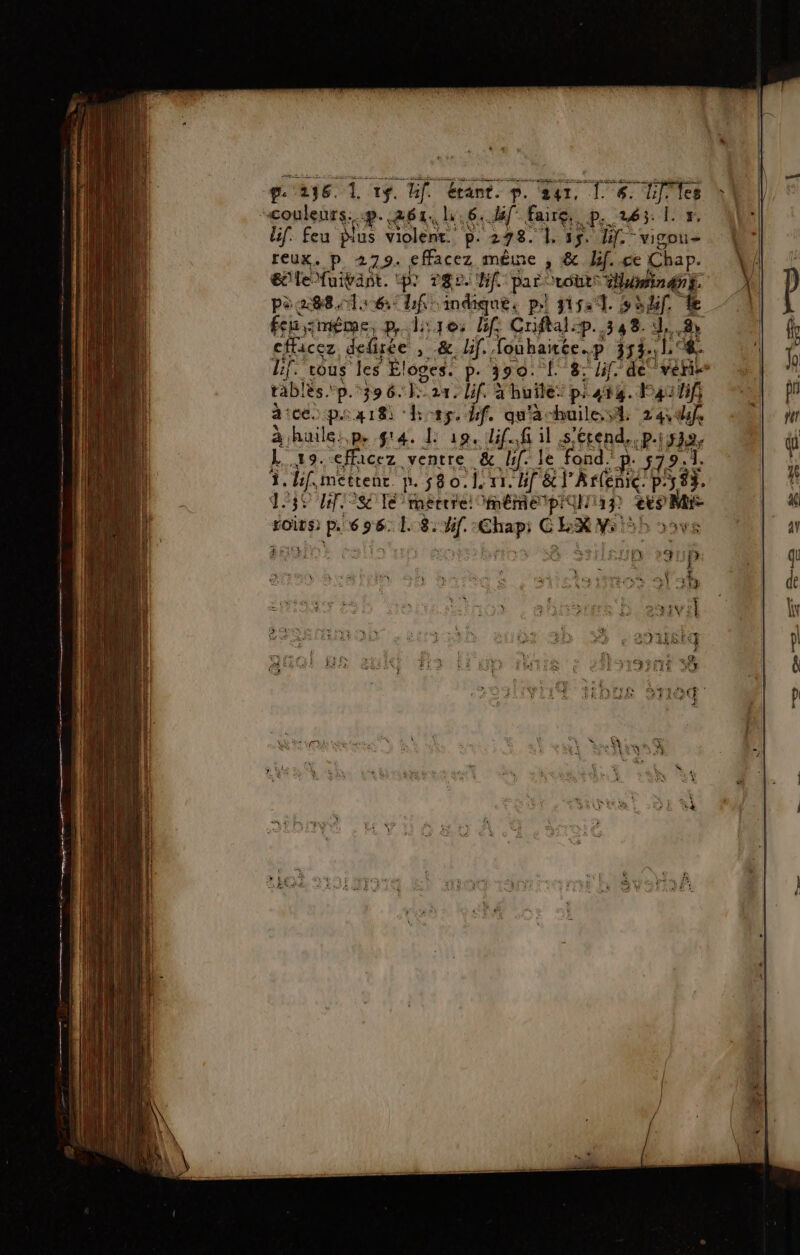 p. 236. l. 15. lis. étant. p. 241. l. 6. lis. les
couleurs. p. 261. l. 6. lis. faire. p. 263. l. 1.
lis. feu plus violent. p. 278. l. 15. lis. vigou-
reux. p 279. effacez même, & lis. ce Chap.
& le suivant. p. 280. lis. par tout
p. 288. l. 6. lis. indiqué. p. 315. l. 9 lis. le
feu même, p. l. 10. lis. Cristal. p. 348. l. 8
effacez desirée, & lis. souhaitée. p 353. l. 8.
lis. tous les Eloges. p. 390. l. 8. lis. de veri-
tables. p. 396. l. 21. lis. à huile. p. 414. l. 4. lis.
à ce. p. 418. l. 15. lis. qu'à huile. l. 24. lis.
à huile. p. 514. l. 19. lis. si il s'étend. p. 532.
l. 19. effacez ventre & lis. le fond. p. 579. l.
1. lis. mettent. p. 580. l. 11. lis & l'Arsenic. p. 583.
l. 3. lis. & le mettre même p. l. 13. Mi-
roirs. p. 696. l. 8. lis. Chap. CLXV.